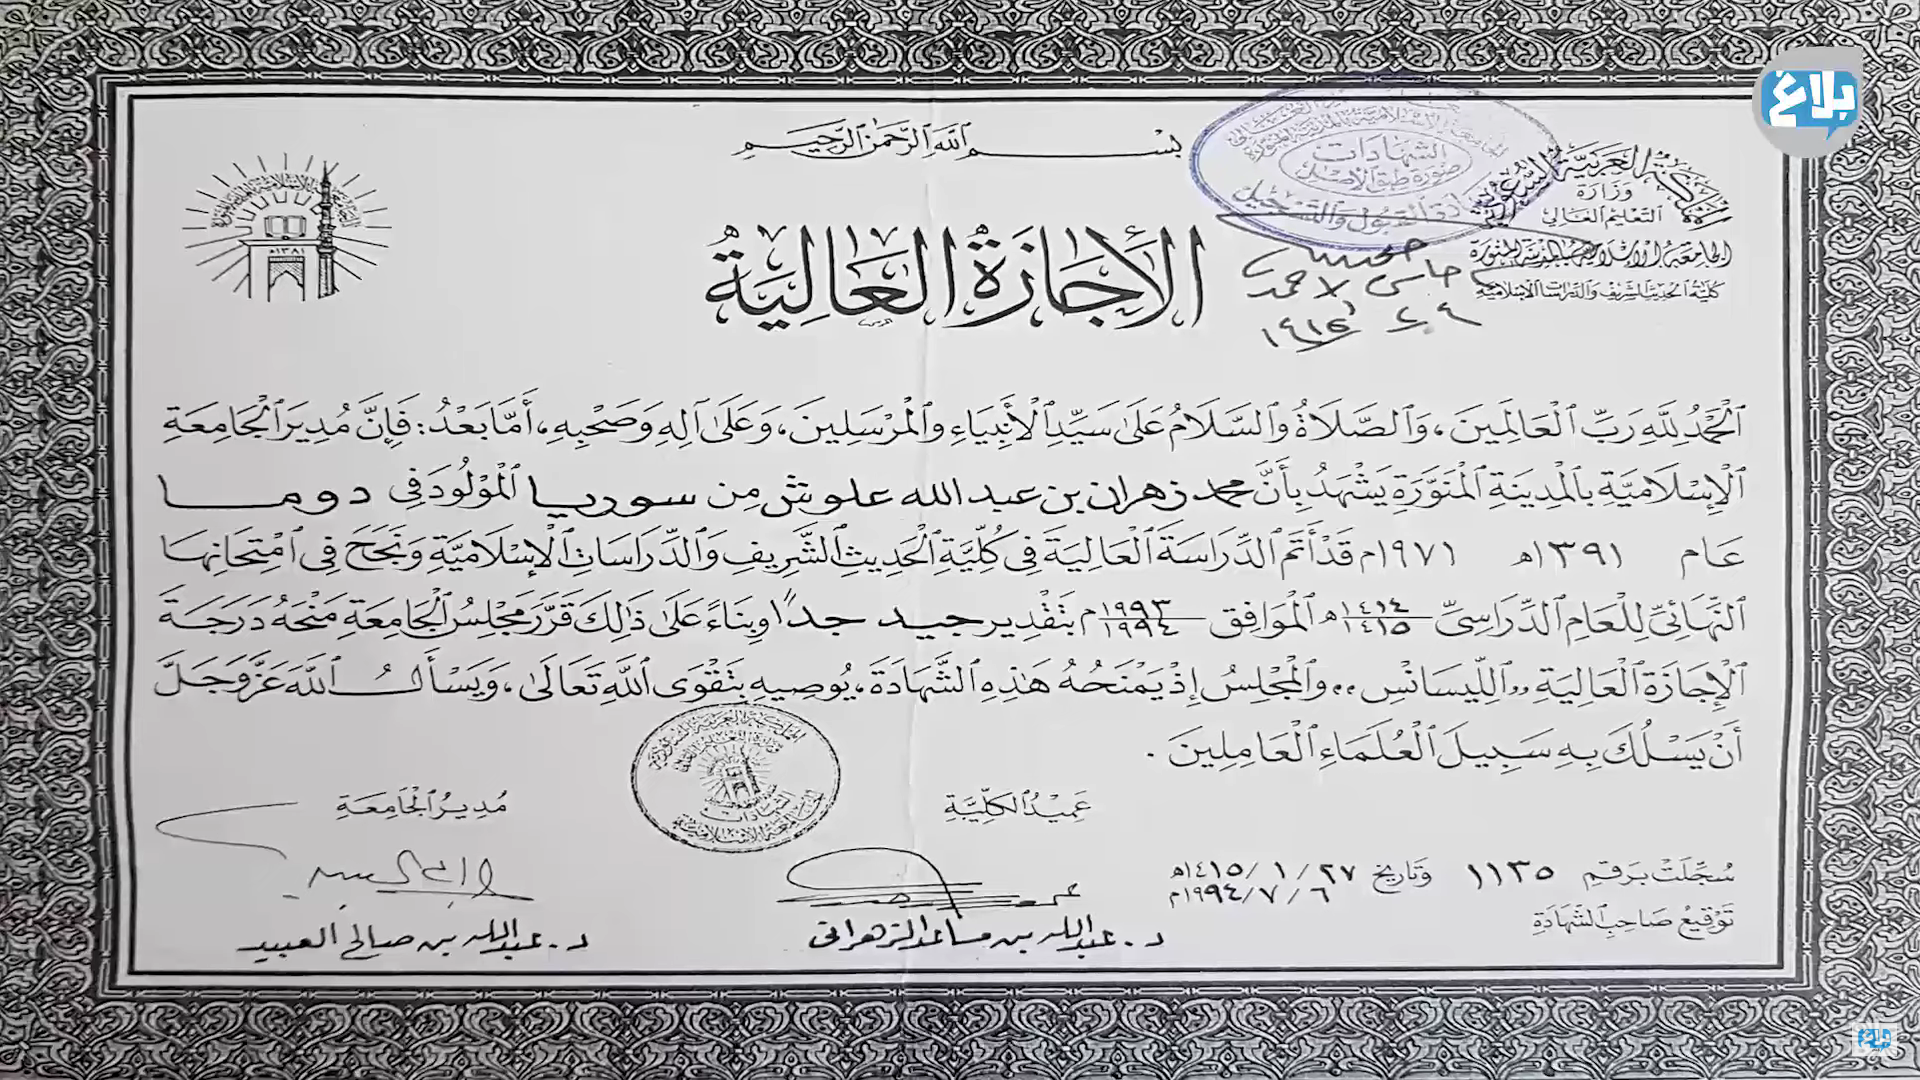 بلاغ
بسم الله الرحمن الرحيم
المملكة العربية السعودية
وزارة
التعليم العالي
الجامعة الإسلامية بالمدينة المنورة
كلية الحديث الشريف والدراسات الإسلامية
الشهادات
صورة طبق الأصل
القبول والتسجيل
١٣٨١هـ
الإجَازَةُ العَالِيَةُ
الْحَمْدُ لِلَّهِ رَبِّ الْعَالَمِينَ، وَالصَّلَاةُ وَالسَّلَامُ عَلَى سَيِّدِ الْأَنْبِيَاءِ وَالْمُرْسَلِينَ، وَعَلَى آلِهِ وَصَحْبِهِ، أَمَّا بَعْدُ: فَإِنَّ مُدِيرَ الْجَامِعَةِ
الْإِسْلَامِيَّةِ بِالْمَدِينَةِ الْمُنَوَّرَةِ يَشْهَدُ بِأَنَّ محمد زهران بن عبد الله علوش مِن سوريا الْمَوْلُودَ فِي دوما
عَام ١٣٩١هـ ١٩٧١م قَدْ أَتَمَّ الدِّرَاسَةَ الْعَالِيَةَ فِي كُلِّيَّةِ الْحَدِيثِ الشَّرِيفِ وَالدِّرَاسَاتِ الْإِسْلَامِيَّةِ وَنَجَحَ فِي امْتِحَانِهَا
النِّهَائِيِّ لِلْعَامِ الدِّرَاسِيِّ ١٤١٤/١٤١٥هـ الْمُوَافِقِ ١٩٩٣/١٩٩٤م بِتَقْدِيرِ جيد جدًا وبِنَاءً عَلَى ذَلِكَ قَرَّرَ مَجْلِسُ الْجَامِعَةِ مَنْحَهُ دَرَجَةَ
الْإِجَازَةِ الْعَالِيَةِ ,,اللِّيسَانْسِ،، وَالْمَجْلِسُ إِذْ يَمْنَحُهُ هَذِهِ الشَّهَادَةَ، يُوصِيهِ بِتَقْوَى اللَّهِ تَعَالَى، وَيَسْأَلُ اللَّهَ عَزَّ وَجَلَّ
أَنْ يَسْلُكَ بِهِ سَبِيلَ الْعُلَمَاءِ الْعَامِلِينَ.
عَمِيدُ الكُلِّيَّةِ
مُدِيرُ الْجَامِعَةِ
سُجِّلَتْ بِرَقمِ ١١٣٥ وَتَاريخ ٢٧/١/١٤١٥هـ
٦/٧/١٩٩٤م
تَوْقِيعُ صَاحِبِ الشَّهَادَةِ
د. عبدالله بن مساعد الزهراني
د. عبدالله بن صالح العبيد
بلاغ